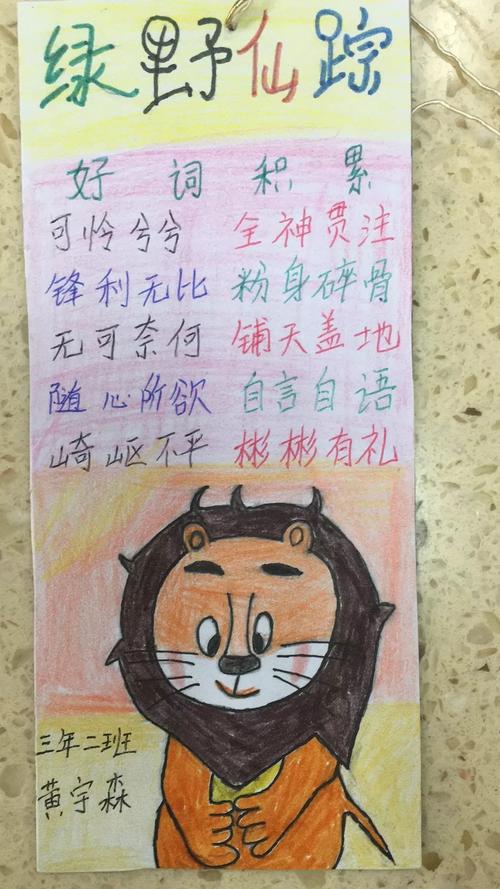 绿野仙踪
好词积累
可怜兮兮 全神贯注
锋利无比 粉身碎骨
无可奈何 铺天盖地
随心阶欲 自言自语
崎岖不平 彬彬有礼
三年二班
黄宇森